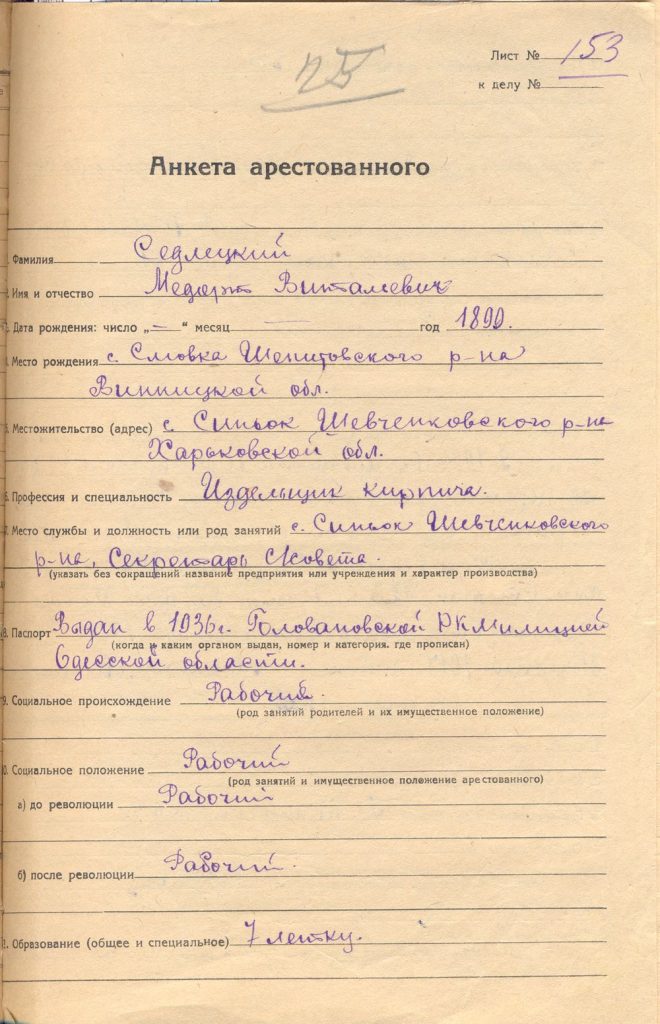 25
Лист № 153
к делу №
Анкета арестованного
Фамилия Седлецкий
Имя и отчество Витальевич
Дата рождения: число „—“ месяц — год 1890.
Место рождения с. Шепитовского р-на
Винницкой обл.
5. Местожительство (адрес) с. Синьок Шевченковского р-на
Харьковской обл.
6. Профессия и специальность Издельщик кирпича.
7. Место службы и должность или род занятий с. Синьок Шевченковского
р-на, Секретарь С/совета.
(указать без сокращений название предприятия или учреждения и характер производства)
8. Паспорт Выдан в 1936 г. Головановской РКМилицией
(когда и каким органом выдан, номер и категория. где прописан)
Одесской области.
9. Социальное происхождение Рабочий.
(род занятий родителей и их имущественное положение)
0. Социальное положение Рабочий
(род занятий и имущественное положение арестованного)
а) до революции Рабочий
б) после революции Рабочий.
1. Образование (общее и специальное) 7 летку.